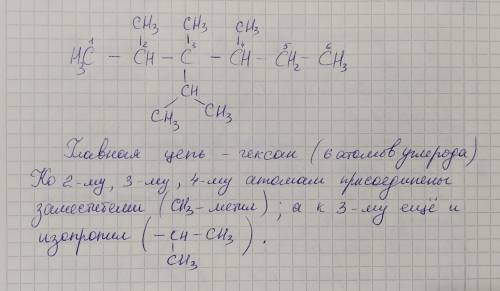 CH₃ CH₃ CH₃
H₃C¹ – ²CH – ³C – ⁴CH – ⁵CH₂ – ⁶CH₃
CH
CH₃ CH₃
Главная цепь – гексан (6 атомов углерода)
Ко 2-му, 3-му, 4-му атомам присоединены
заместители (CH₃-метил); а к 3-му ещё и
изопропил (–CH–CH₃).
CH₃